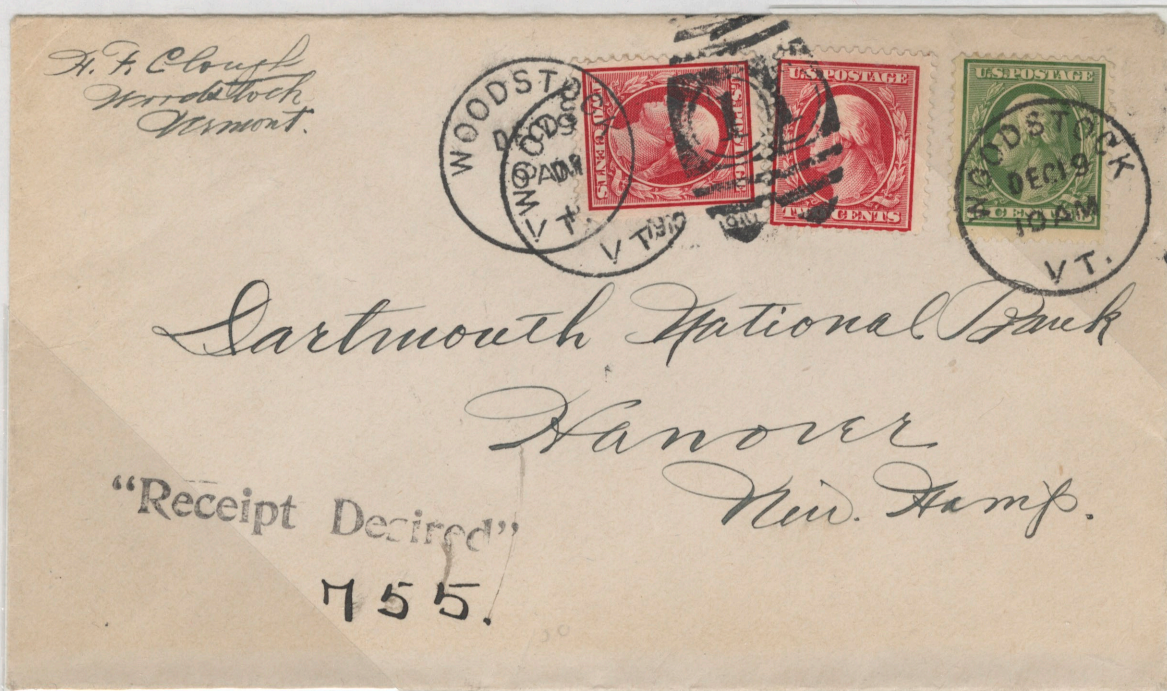 H. F. Clough
Woodstock
Vermont.
WOODSTOCK
VT.
WOODSTOCK
VT.
U.S. POSTAGE
TWO CENTS
U.S. POSTAGE
TWO CENTS
U.S. POSTAGE
CENT
WOODSTOCK
DEC 19
10 AM
VT.
Dartmouth National Bank
Hanover
New. Hamp.
"Receipt Desired"
755.